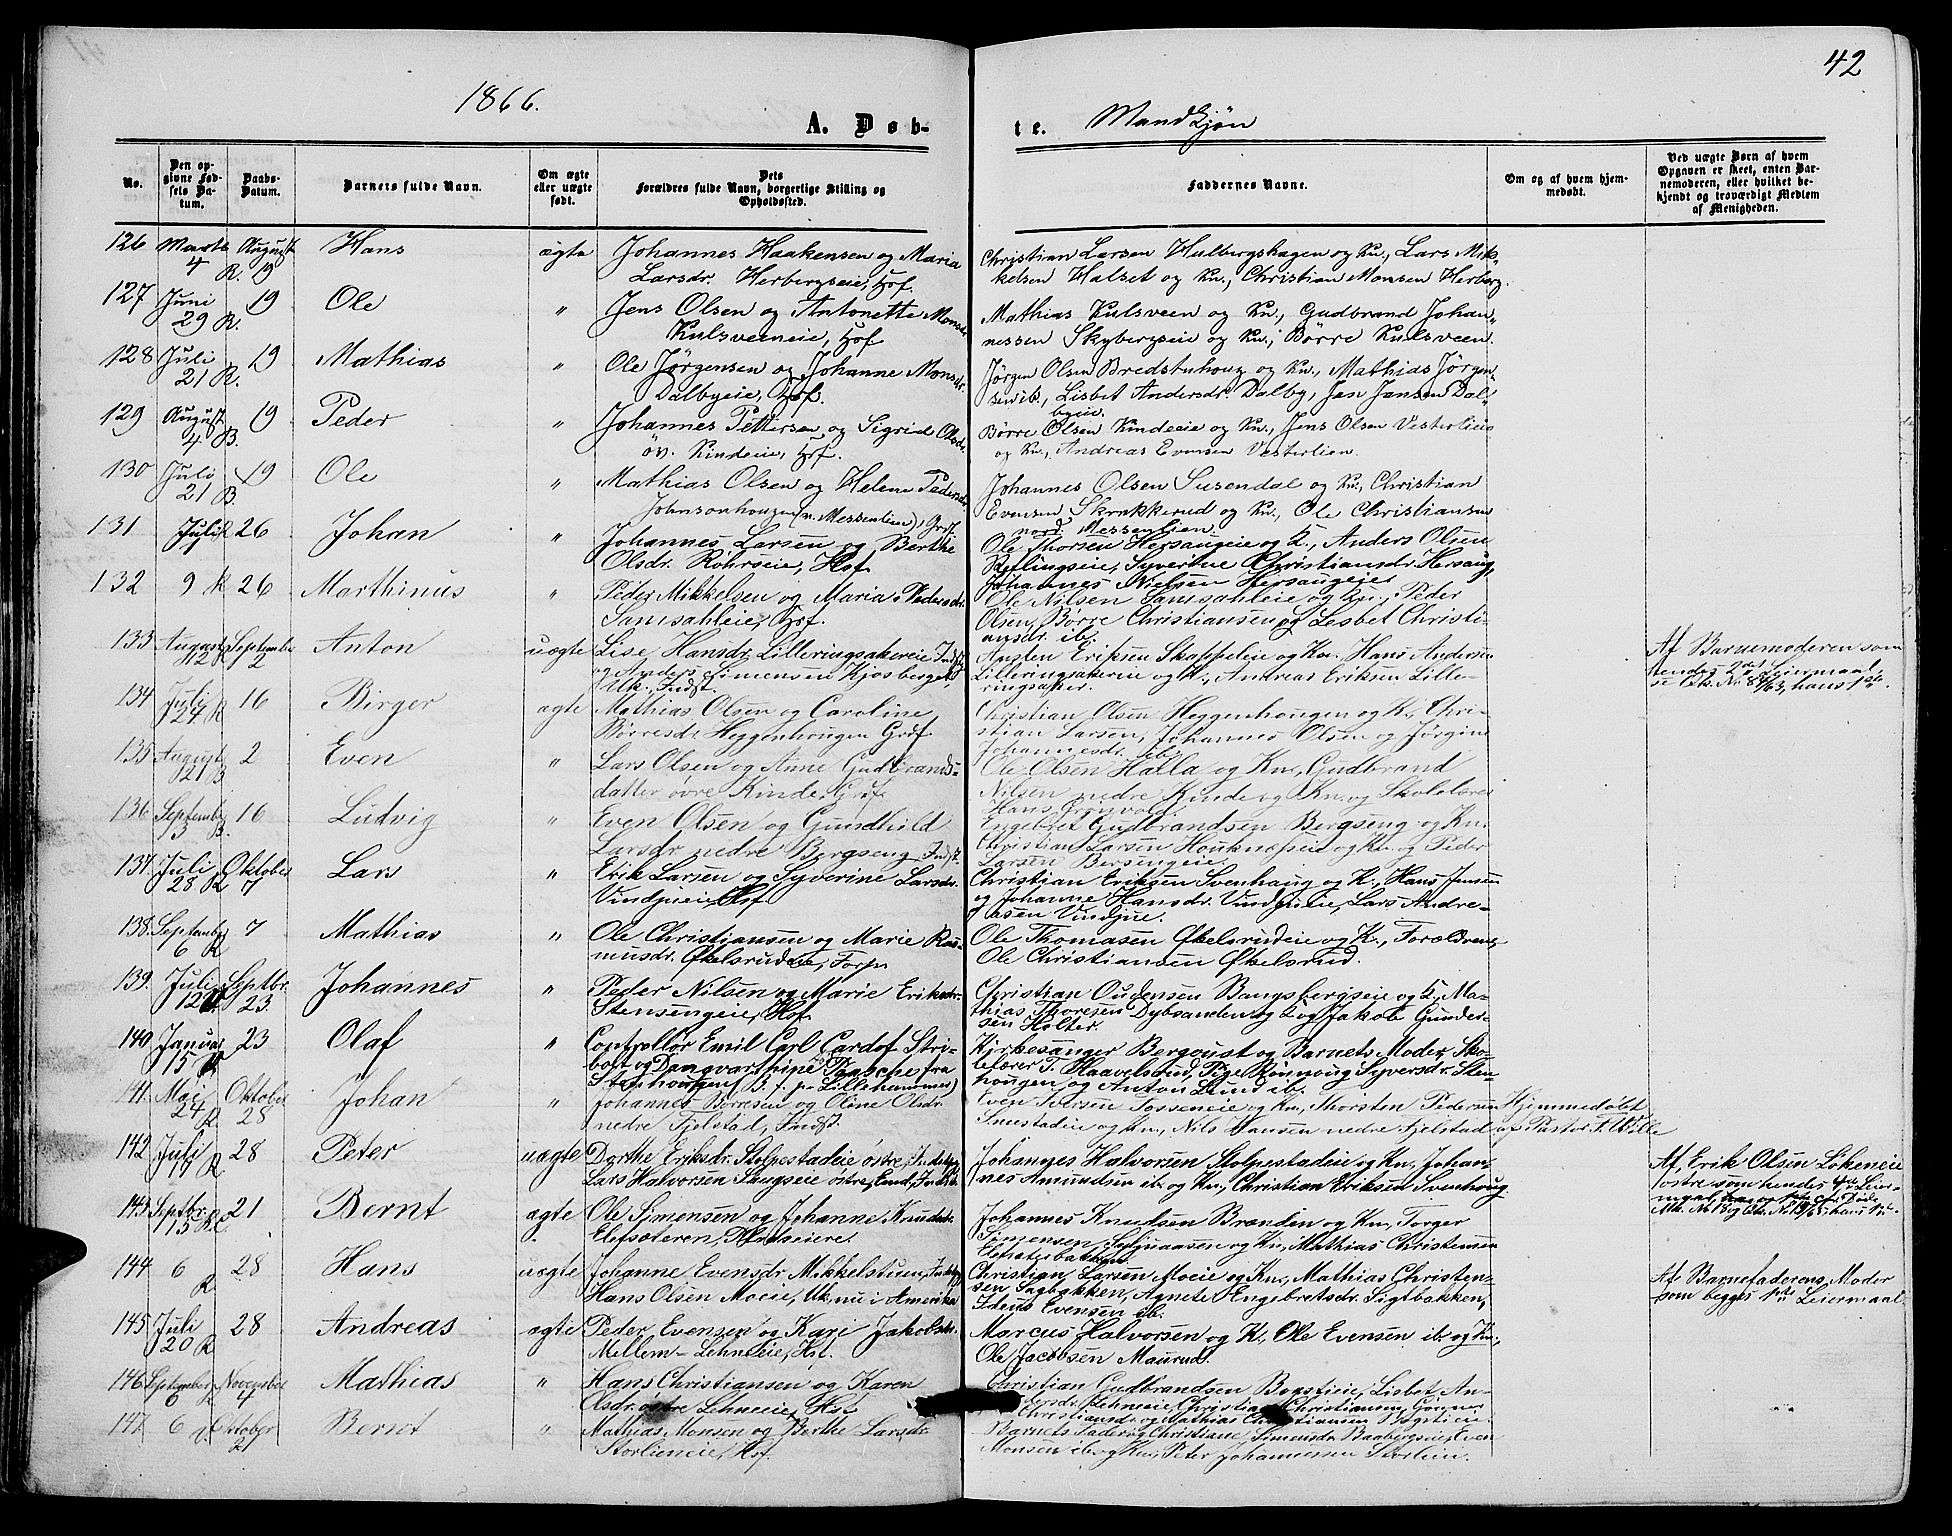 42
1866.
A. Døb-
te. Mandkjøn
No.
Den op-
givne Fød-
sels Da-
tum.
Daabs-
Datum.
Barnets fulde Navn.
Om ægte
eller uægte
født.
Dets
Forældres fulde Navn, borgerlige Stilling og
Opholdssted.
Faddernes Navne.
Om og af hvem hjem-
medøbt.
Ved uægte Børn af hvem
Opgaven er skeet, enten Bar-
nemoderen, eller hvilket be-
kjendt og troværdigt Medlem
af Menigheden.
126 Marts 4 R. August 19 Hans ægte Johannes Haakensen og Maria
Larsdr. Herbergseie, Hof.
Christian Larsen Hulbergshagen og Ku., Lars Mik-
kelsen Halset og Ku., Christian Monsen Herberg.
127 Juni 29 R. 19 Ole " Jens Olsen og Antonette Monsdr.
Kulsveeneie, Hof
Mathias Kulsveen og Ku., Gudbrand Johan-
nessen Skybergseie og Ku., Børre Kulsveen.
128 Juli 21 R. 19 Mathias " Ole Jørgensen og Johanne Monsdr.
Dalbyeie, Hof.
Jørgen Olsen Bredstuhoug og Ku., Mathias Jørgen-
sen ib., Lisbet Andersdr. Dalby, Jan Jansen Dal-
byeie.
129 August 4 B. 19 Peder " Johannes Pettersen og Sigrid Olsdr.
öv. Kindeeie, Hof.
Børre Olsen Kindeeie og Ku., Jens Olsen Vesterlien
og Ku., Andreas Evensen Vesterlien.
130 Juli 21 B. 19 Ole " Mathias Olsen og Helene Pedersdr.
Johnsonhougen (v. Messenlien), Grf.
Johannes Olsen Susendal og Ku., Christian
Evensen Skrukkerud og Ku., Ole Christiansen
nord. Messenlien.
131 Juli 26 Johan " Johannes Larsen og Berthe
Olsdr. Rohrseie, Hof
Ole Thorsen Hersaugeie og K., Anders Olsen
Kyflingseie, Syverine Christiansdr. Hersaug,
Johannes Nielsen Hersaugeie
132 9 R 26 Marthinus " Peder Mikkelsen og Maria Pedersdr.
Samsahleie, Hof.
Ole Nilsen Samsahleie og Ku., Peder
Olsen, Børre Christiansen og Lisbet Christi-
ansdr. ib.
133 August 12 R September 2 Anton uægte Lise Hansdr. Lilleringsakereie Indst.
og Anders Simensen Kjosberget,
Uk. Indst.
Austen Eriksen Skappeleie og Kn. Hans Andersen
Lilleringsakereie og K., Andreas Eriksen Lille-
ringsaker.
Af Barnemoderen som
hendes 2det Leiermaal,
hans 1ste.
134 Juli 24 R 16 Birger ægte Mathias Olsen og Caroline
Børresdr. Heggenhougen Grf.
Christian Olsen Heggenhougen og K., Chri-
stian Larsen, Johannes Olsen og Jørgine
Johannesdr. ib.
135 August 21 B 2 Even " Lars Olsen og Anne Gudbrands-
datter øvre Kinde, Grf.
Ole Olsen Halla og Kn., Gudbrand
Nilsen nedre Kinde og Kn. og Skolelærer
Hans Grønvold
136 September 3 B. 16 Ludvig " Even Olsen og Gundhild
Larsdr. nedre Bergseng, Indst.
Engebret Gudbrandsen Bergseng og Kn.
Christian Larsen Houknesseie og Kn. og Peder
Larsen Bersengeie.
137. Juli 28 R Oktober 7 Lars " Erik Larsen og Syverine Larsdr.
Vindjueie, Hof
Christian Eriksen Svenhaug og K., Hans Jensen
og Johanne Hansdr. Vindjueie, Lars Andre-
asen Vindjue.
138. September 6 R 7 Mathias " Ole Christiansen og Marie Ras-
musdr. Økelsrudeie, Torp.
Ole Thomasen Økelsrudeie og K., Forældrene,
Ole Christiansen Økelsrud.
139. Juli 12 Septbr. 23. Johannes " Peder Nilsen og Marie Eriksdr.
Stensengeie, Hof
Christian Oudensen Bangsbergseie og K, Ma-
thias Thoresen Dybsanden og Jakob Gunder-
sen Holter.
140 Januar 15 R 23 Olaf " Controllör Emil Carl Cardof Stri-
bolt og Dangvarthine Paasche fra
Stenhougen (B. f. p. Lillehammer)
Kirkesanger Bergqust og Barnets Moder, Sko-
lelærer T. Haavelsrud, Pige Rønnoug Syversdr. Sten-
hougen og Anton Lund ib.
141. Mai 24 R Oktober 28 Johan " Johannes Børresen og Oline Olsdr.
nedre Fjelstad, Indst.
Even Iversen Fosseneie og Kn., Thorsten Pedersen
Smestadeie og Kn., Nils Hansen nedre Fjelstad
Hjemmedøbt
af Pastor F. Wille
142 Juli 17 R 28 Peter uægte Dorthe Eriksdr. Stolpestadeie östre, Indst. og
Lars Halvorsen Saugseie östre, Emd., Indst.
Johannes Halvorsen Stolpestadeie og Kn., Johan-
nes Amundsen ib. og Kn., Christian Eriksen Svenhoug
Af Erik Olsen Lökeneie
östre som hendes 4de Leier-
maal,
143 Septbr. 15 R 21 Bernt ægte Ole Simensen og Johanne Knudsdr.
Elefsæteren, Huseiere.
Johannes Knudsen Brænden og Kn., Torger
Simensen Sølynaasen og Kn., Mathias Christensen
Elefsæterbakken
144 6 R 28 Hans uægte Johanne Evensdr. Mikkelstuen, Indst. og
Hans Olsen Moeie, Uk, nu i Amerika
Christian Larsen Moeie og Kn., Mathias Christen-
sen Sagbakken, Agnete Engebretsdr. Sagbakken,
Edeus Evensen ib.
Af Barnefaderens Moder
som begges 1ste Leiermaal.
145 Juli 20 R 28 Andreas ægte Peder Evensen og Kari Jakobsdr.
Mellem-Lehneeie, Hof.
Marcus Halvorsen og K, Ole Evensen ib. og Kn.,
Ole Jacobsen Maurud.
146 September 6 R November 4 Mathias " Hans Christiansen og Karen
Olsdr. östre Lehneeie, Hof
Christian Gudbrandsen Bogstieie, Lisbet An-
dersdr. Lehneeie, Christian Christiansen, Gønner
Christiansdr. og Mathias Christiansen Bogstieie.
147. 6 Oktober 21 Bernt " Mathias Monsen og Berthe Larsdr.
Storlieneie, Hof.
Barnets Fader og Christiane Simensdr. Baabergseie, Even
Monsen ib. og Kn., Peter Johannessen Storlien.